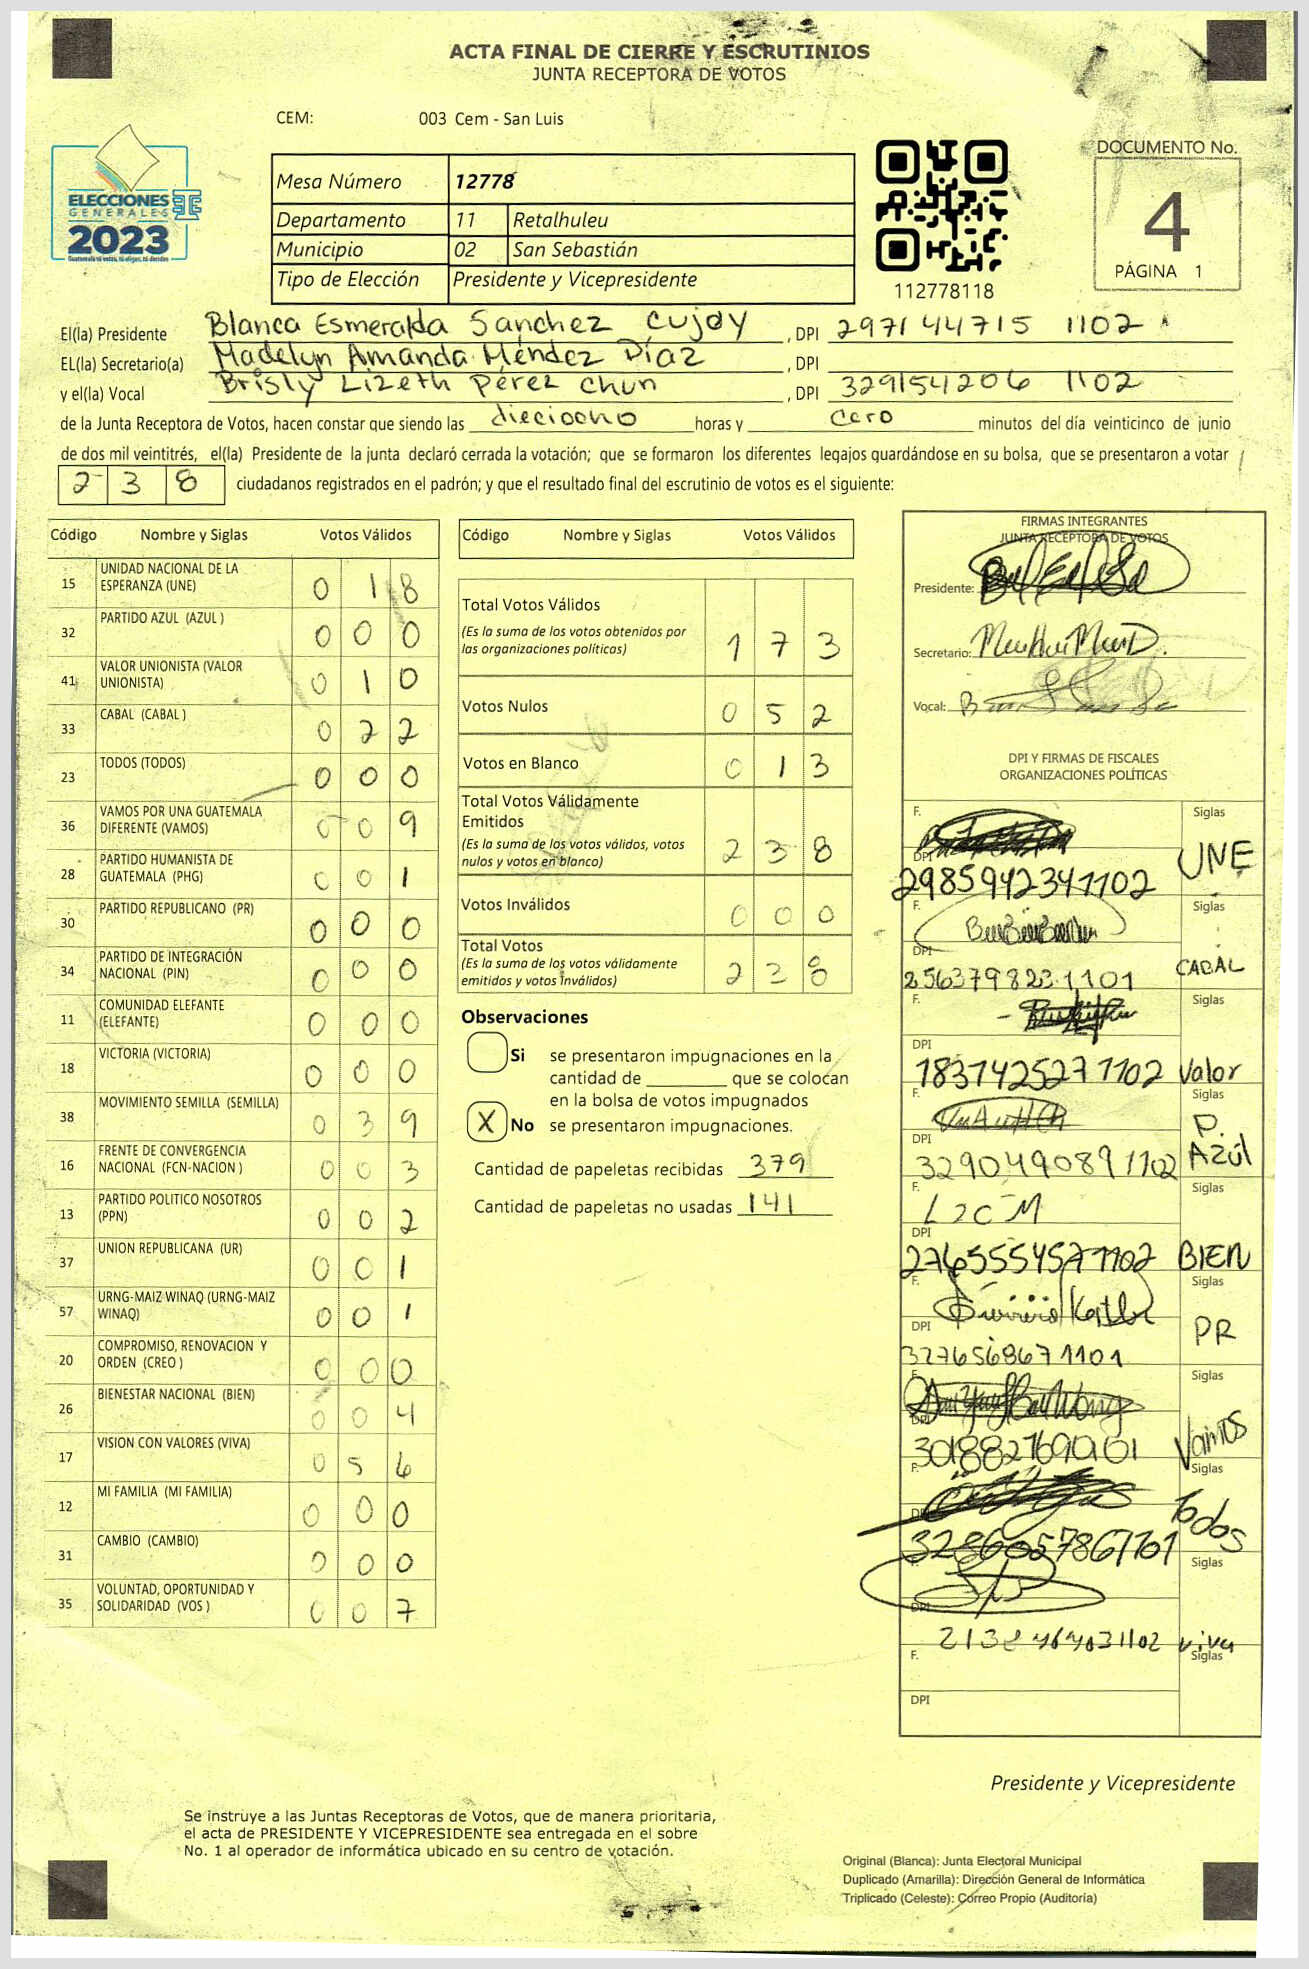 ACTA FINAL DE CIERRE Y ESCRUTINIOS
JUNTA RECEPTORA DE VOTOS
CEM: 003 Cem - San Luis
ELECCIONES
GENERALES
2023
Guatemala tú votas, tú eliges, tú decides
Mesa Número 12778
Departamento 11 Retalhuleu
Municipio 02 San Sebastián
Tipo de Elección Presidente y Vicepresidente
112778118
DOCUMENTO No.
4
PÁGINA 1
El(la) Presidente Blanca Esmeralda Sánchez Cujoy , DPI 297144715 1102
EL(la) Secretario(a) Madelyn Amanda Méndez Díaz , DPI
y el(la) Vocal Brisly Lizeth Pérez Chun , DPI 329154206 1102
de la Junta Receptora de Votos, hacen constar que siendo las dieciocho horas y cero minutos del día veinticinco de junio
de dos mil veintitrés, el(la) Presidente de la junta declaró cerrada la votación; que se formaron los diferentes legajos guardándose en su bolsa, que se presentaron a votar
238 ciudadanos registrados en el padrón; y que el resultado final del escrutinio de votos es el siguiente:
Código Nombre y Siglas Votos Válidos
15 UNIDAD NACIONAL DE LA ESPERANZA (UNE) 0 1 8
32 PARTIDO AZUL (AZUL ) 0 0 0
41 VALOR UNIONISTA (VALOR UNIONISTA) 0 1 0
33 CABAL (CABAL ) 0 2 2
23 TODOS (TODOS) 0 0 0
36 VAMOS POR UNA GUATEMALA DIFERENTE (VAMOS) 0 0 9
28 PARTIDO HUMANISTA DE GUATEMALA (PHG) 0 0 1
30 PARTIDO REPUBLICANO (PR) 0 0 0
34 PARTIDO DE INTEGRACIÓN NACIONAL (PIN) 0 0 0
11 COMUNIDAD ELEFANTE (ELEFANTE) 0 0 0
18 VICTORIA (VICTORIA) 0 0 0
38 MOVIMIENTO SEMILLA (SEMILLA) 0 3 9
16 FRENTE DE CONVERGENCIA NACIONAL (FCN-NACION ) 0 0 3
13 PARTIDO POLITICO NOSOTROS (PPN) 0 0 2
37 UNION REPUBLICANA (UR) 0 0 1
57 URNG-MAIZ WINAQ (URNG-MAIZ WINAQ) 0 0 1
20 COMPROMISO, RENOVACION Y ORDEN (CREO ) 0 0 0
26 BIENESTAR NACIONAL (BIEN) 0 0 4
17 VISION CON VALORES (VIVA) 0 5 6
12 MI FAMILIA (MI FAMILIA) 0 0 0
31 CAMBIO (CAMBIO) 0 0 0
35 VOLUNTAD, OPORTUNIDAD Y SOLIDARIDAD (VOS ) 0 0 7
Código Nombre y Siglas Votos Válidos
Total Votos Válidos
(Es la suma de los votos obtenidos por las organizaciones políticas) 1 7 3
Votos Nulos 0 5 2
Votos en Blanco 0 1 3
Total Votos Válidamente Emitidos
(Es la suma de los votos válidos, votos nulos y votos en blanco) 2 3 8
Votos Inválidos 0 0 0
Total Votos
(Es la suma de los votos válidamente emitidos y votos inválidos) 2 3 8
Observaciones
Si se presentaron impugnaciones en la
cantidad de ________ que se colocan
en la bolsa de votos impugnados
X No se presentaron impugnaciones.
Cantidad de papeletas recibidas 379
Cantidad de papeletas no usadas 141
FIRMAS INTEGRANTES
JUNTA RECEPTORA DE VOTOS
Presidente:
Secretario:
Vocal:
DPI Y FIRMAS DE FISCALES
ORGANIZACIONES POLÍTICAS
F. Siglas
DPI 2985942341102 UNE
F. Siglas
DPI 2563798231101 CABAL
F. Siglas
DPI 1831425271102 Valor
F. Siglas
DPI 3290490891102 P. Azúl
F. Siglas
DPI 2765554571102 BIEN
F. Siglas
DPI 3276568671101 PR
F. Siglas
DPI Vamos
F. Siglas
DPI Todos
F. Siglas
DPI viva
F. Siglas
DPI
Presidente y Vicepresidente
Se instruye a las Juntas Receptoras de Votos, que de manera prioritaria,
el acta de PRESIDENTE Y VICEPRESIDENTE sea entregada en el sobre
No. 1 al operador de informática ubicado en su centro de votación.
Original (Blanca): Junta Electoral Municipal
Duplicado (Amarilla): Dirección General de Informática
Triplicado (Celeste): Correo Propio (Auditoría)